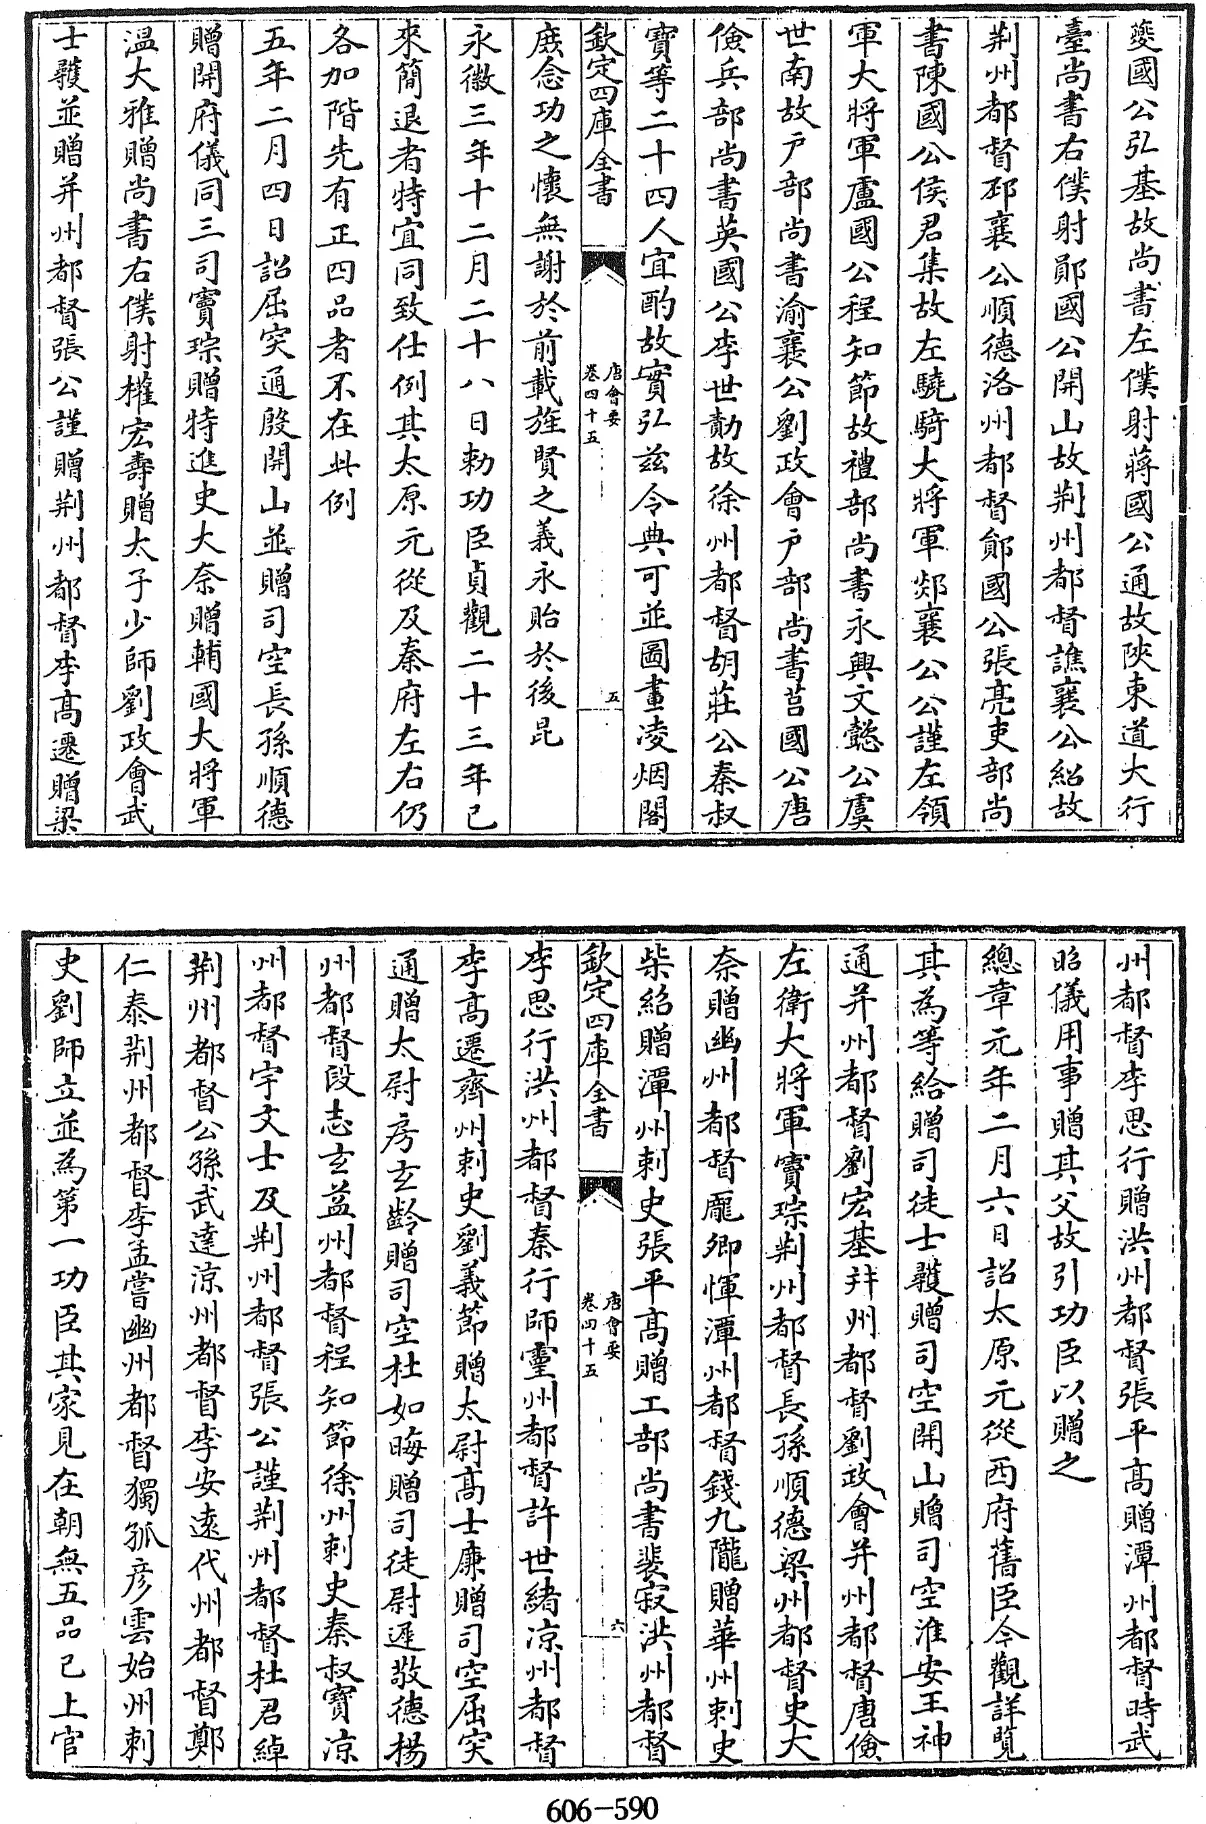 夔國公弘基故尚書左僕射蔣國公通故陝東道大行
臺尚書右僕射鄖國公開山故荆州都督譙襄公紹故
荆州都督邳襄公順德洛州都督鄖國公張亮吏部尚
書陳國公侯君集故左驍騎大將軍郯襄公公謹左領
軍大將軍盧國公程知節故禮部尚書永興文懿公虞
世南故户部尚書渝襄公劉政會户部尚書莒國公唐
儉兵部尚書英國公李世勣故徐州都督胡莊公秦叔
寶等二十四人宜酌故實弘兹令典可並圖畫凌烟閣
欽定四庫全書
唐會要
卷四十五
五
庶念功之懷無謝於前載旌賢之義永貽於後昆
永徽三年十二月二十八日勅功臣貞觀二十三年已
來簡退者特宜同致仕例其太原元從及秦府左右仍
各加階先有正四品者不在此例
五年二月四日詔屈突通殷開山並贈司空長孫順德
贈開府儀同三司竇琮贈特進史大奈贈輔國大將軍
温大雅贈尚書右僕射權宏壽贈太子少師劉政會武
士彠並贈并州都督張公謹贈荆州都督李高遷贈梁
州都督李思行贈洪州都督張平高贈潭州都督時武
昭儀用事贈其父故引功臣以贈之
總章元年二月六日詔太原元從西府舊臣今觀詳覽
其為等給贈司徒士彠贈司空開山贈司空淮安王神
通并州都督劉宏基并州都督劉政會并州都督唐儉
左衛大將軍竇琮荆州都督長孫順德梁州都督史大
奈贈幽州都督龐卿惲潭州都督錢九隴贈華州刺史
柴紹贈潭州刺史張平高贈工部尚書裴寂洪州都督
欽定四庫全書
唐會要
卷四十五
六
李思行洪州都督秦行師靈州都督許世緒凉州都督
李高遷齊州刺史劉義節贈太尉高士廉贈司空屈突
通贈太尉房玄齡贈司空杜如晦贈司徒尉遲敬德揚
州都督段志玄益州都督程知節徐州刺史秦叔寶凉
州都督宇文士及荆州都督張公謹荆州都督杜君綽
荆州都督公孫武達凉州都督李安遠代州都督鄭
仁泰荆州都督李孟嘗幽州都督獨孤彦雲始州刺
史劉師立並為第一功臣其家見在朝無五品已上官
606-590